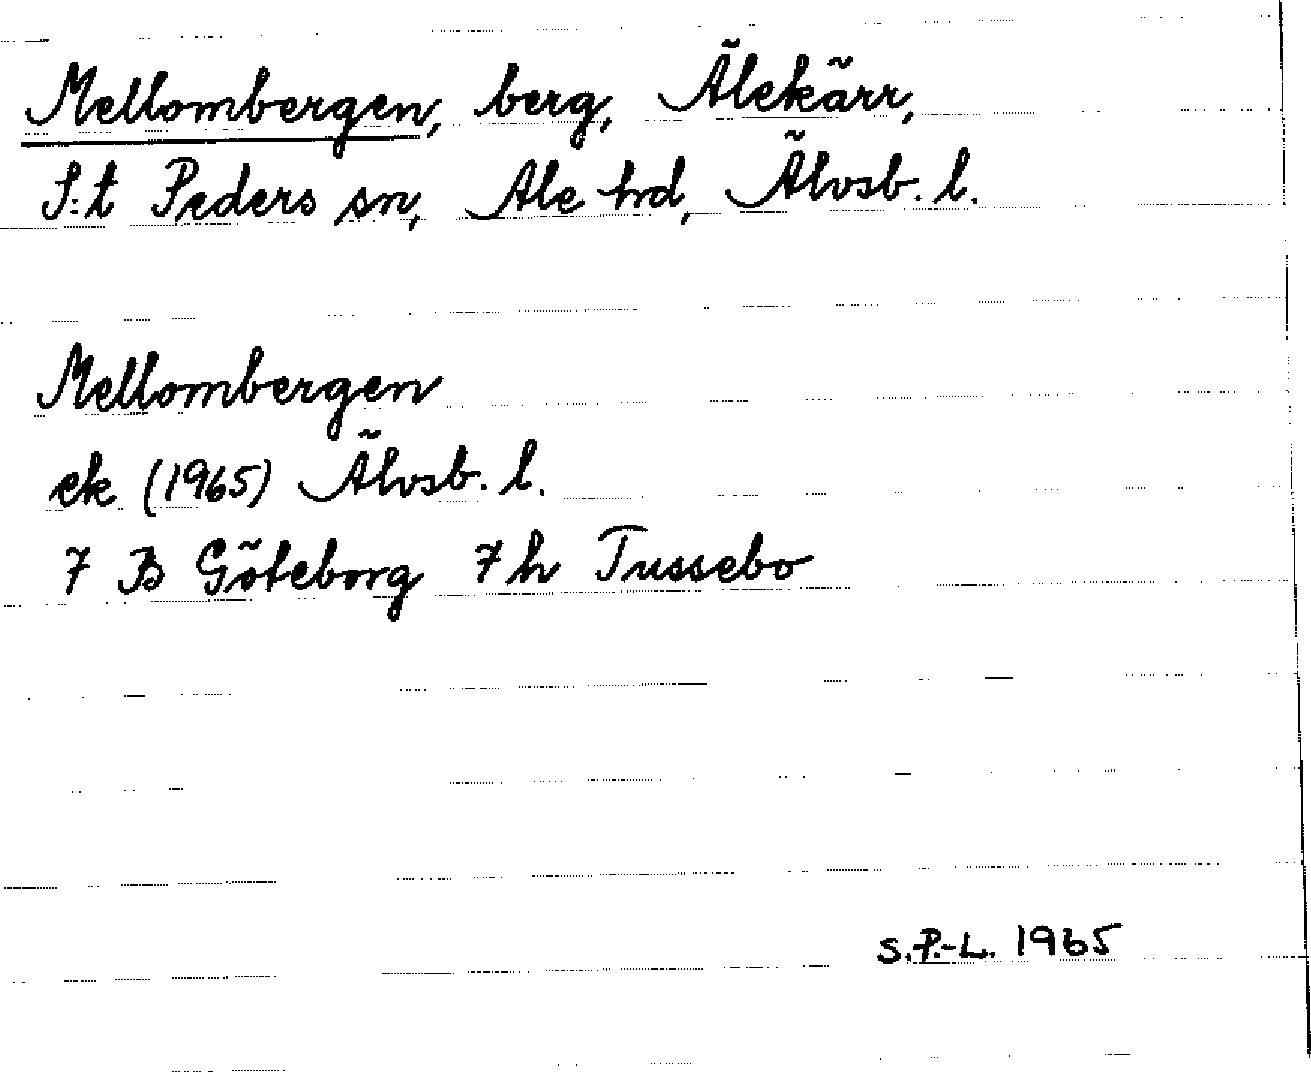 Mellombergen, berg, Älekärr,
S:t Peders sn, Ale hd, Älvsb. l.
Mellombergen
ek (1965) Älvsb. l.
7 B Göteborg 7 h Tussebo
S.P.-L. 1965